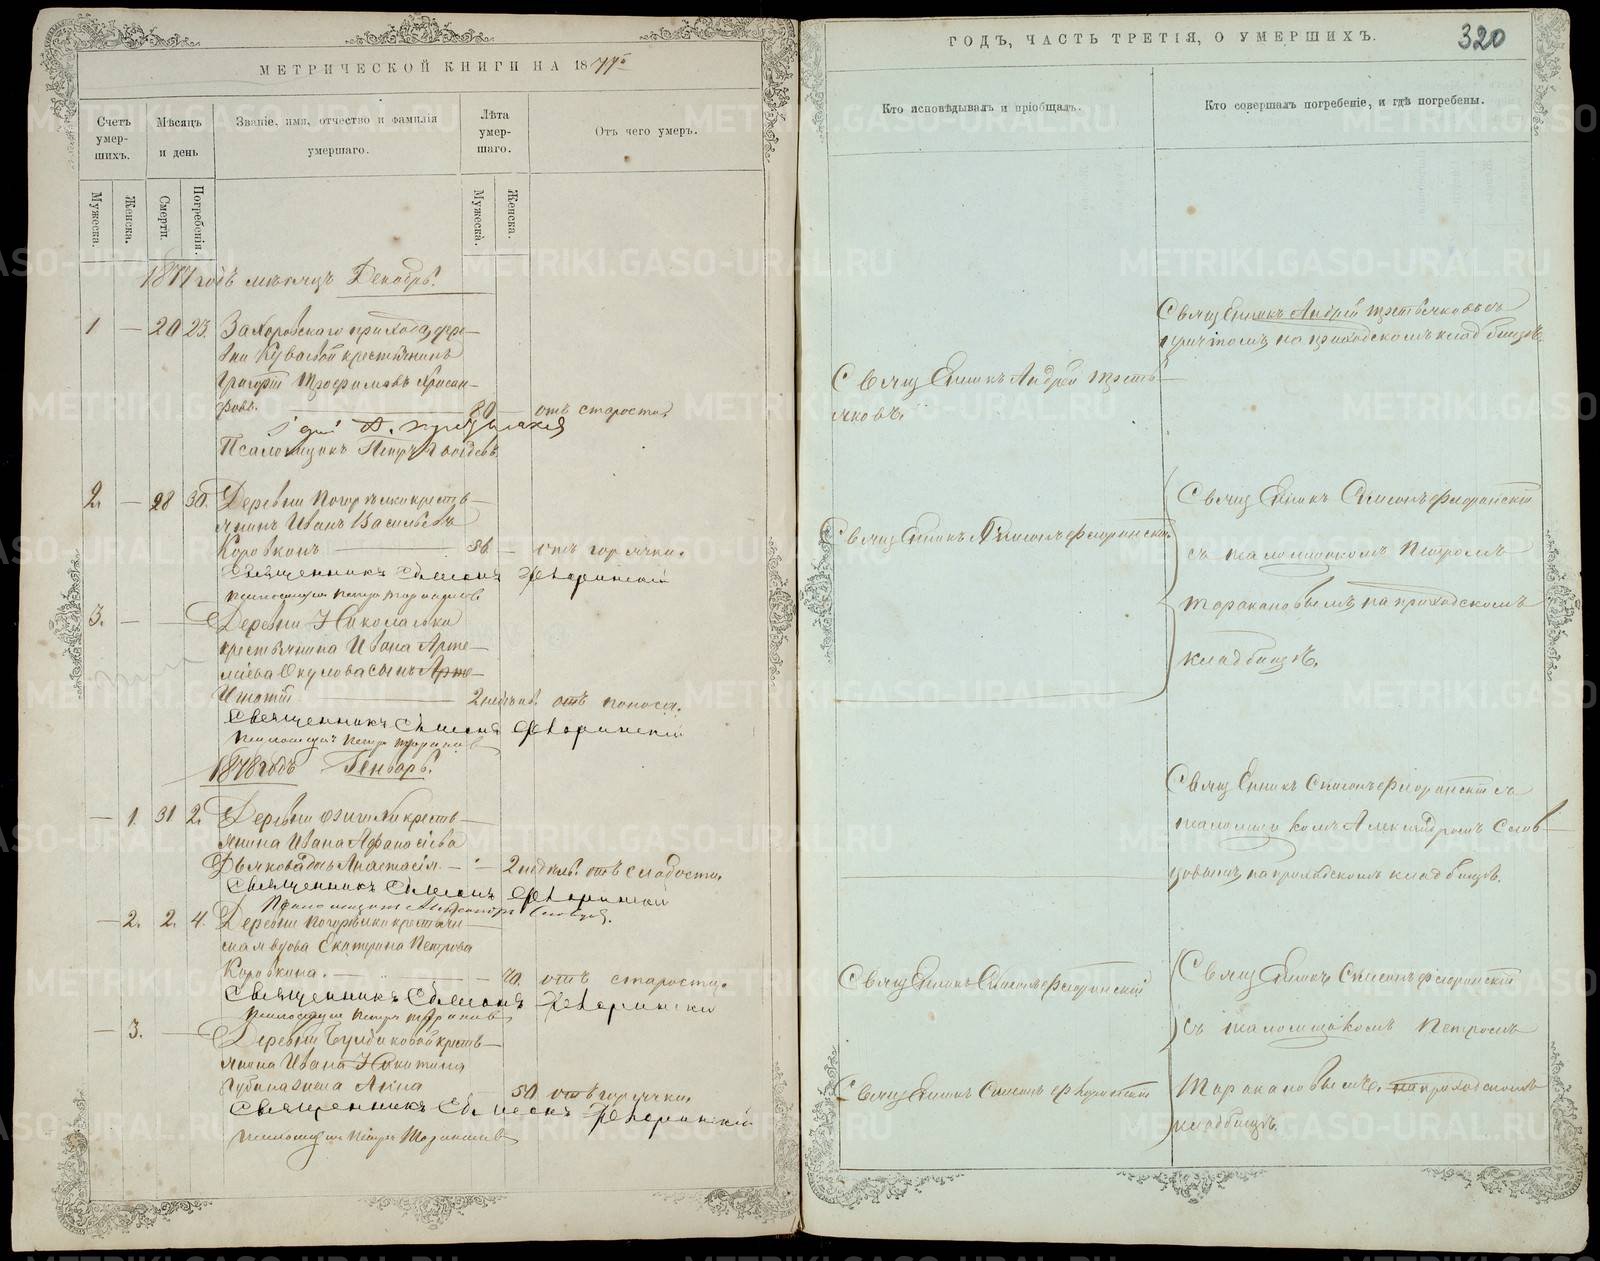 МЕТРИЧЕСКОЙ КНИГИ НА 1877й
Счетъ умер-
шихъ.
Мѣсяцъ
и день
Званіе, имя, отчество и фамилія
умершаго.
Лѣта
умер-
шаго.
Отъ чего умеръ.
Мужеска.
Женска.
Смерти.
Погребенія.
Мужеска.
Женска.
1877 годъ мѣсяцъ Декабрь.
1 — 20 23. Захаровскаго прихода, дере-
вни крестьянинъ
Григорій Трофимовъ
80 — отъ старости.
Псаломщикъ Петръ
2. — 28 30. Деревни крестъ-
янинъ Иванъ Васильевъ
Коровкинъ — 56. — отъ горячки.
Священникъ Симеонъ Флоринскій
Псаломщикъ Петръ Таракановъ
3. — Деревни Николаевки
крестьянина Ивана Арте-
міева Окулова сынъ
2 недѣль. отъ поноса.
Священникъ Симеонъ Флоринскій
Псаломщикъ Петръ
1878 годъ Генварь.
— 1. 31 2. Деревни крестъ-
янина Ивана Афанасіева
Дьячкова дочь Анастасія. — 2 недѣль. отъ слабости.
Священникъ Симеонъ Флоринскій
Псаломщикъ Александръ
— 2. 2. 4. Деревни крестьян-
ская вдова Екатерина Петрова
Коровкина. — 70. отъ старости.
Священникъ Симеонъ Флоринскій
Псаломщикъ Петръ
— 3. — Деревни крестъ-
янина Ивана Никитина
Губина жена Анна 50 отъ горячки.
Священникъ Симеонъ Флоринскій
Псаломщикъ Петръ Таракановъ
ГОДЪ, ЧАСТЬ ТРЕТІЯ, О УМЕРШИХЪ.
320
Кто исповѣдывалъ и пріобщалъ.
Кто совершалъ погребеніе, и гдѣ погребены.
Священникъ Андрей Третья-
ковъ.
Священникъ Андрей Третьяковъ съ
причтомъ на приходскомъ кладбищѣ.
Священникъ Симеонъ Флоринскій
Священникъ Симеонъ Флоринскій
съ псаломщикомъ Петромъ
Таракановымъ на приходскомъ
кладбищѣ.
Священникъ Симеонъ Флоринскій съ
псаломщикомъ Александромъ Слов-
цовымъ на приходскомъ кладбищѣ.
Священникъ Симеонъ Флоринскій
Священникъ Симеонъ Флоринскій
съ псаломщикомъ Петромъ
Таракановымъ, на приходскомъ
кладбищѣ.
Священникъ Симеонъ Флоринскій
METRIKI.GASO-URAL.RU